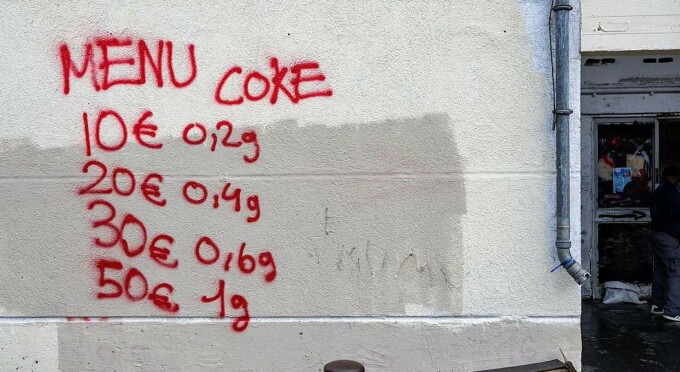 MENU COKE
10€ 0,2g
20€ 0,4g
30€ 0,6g
50€ 1g